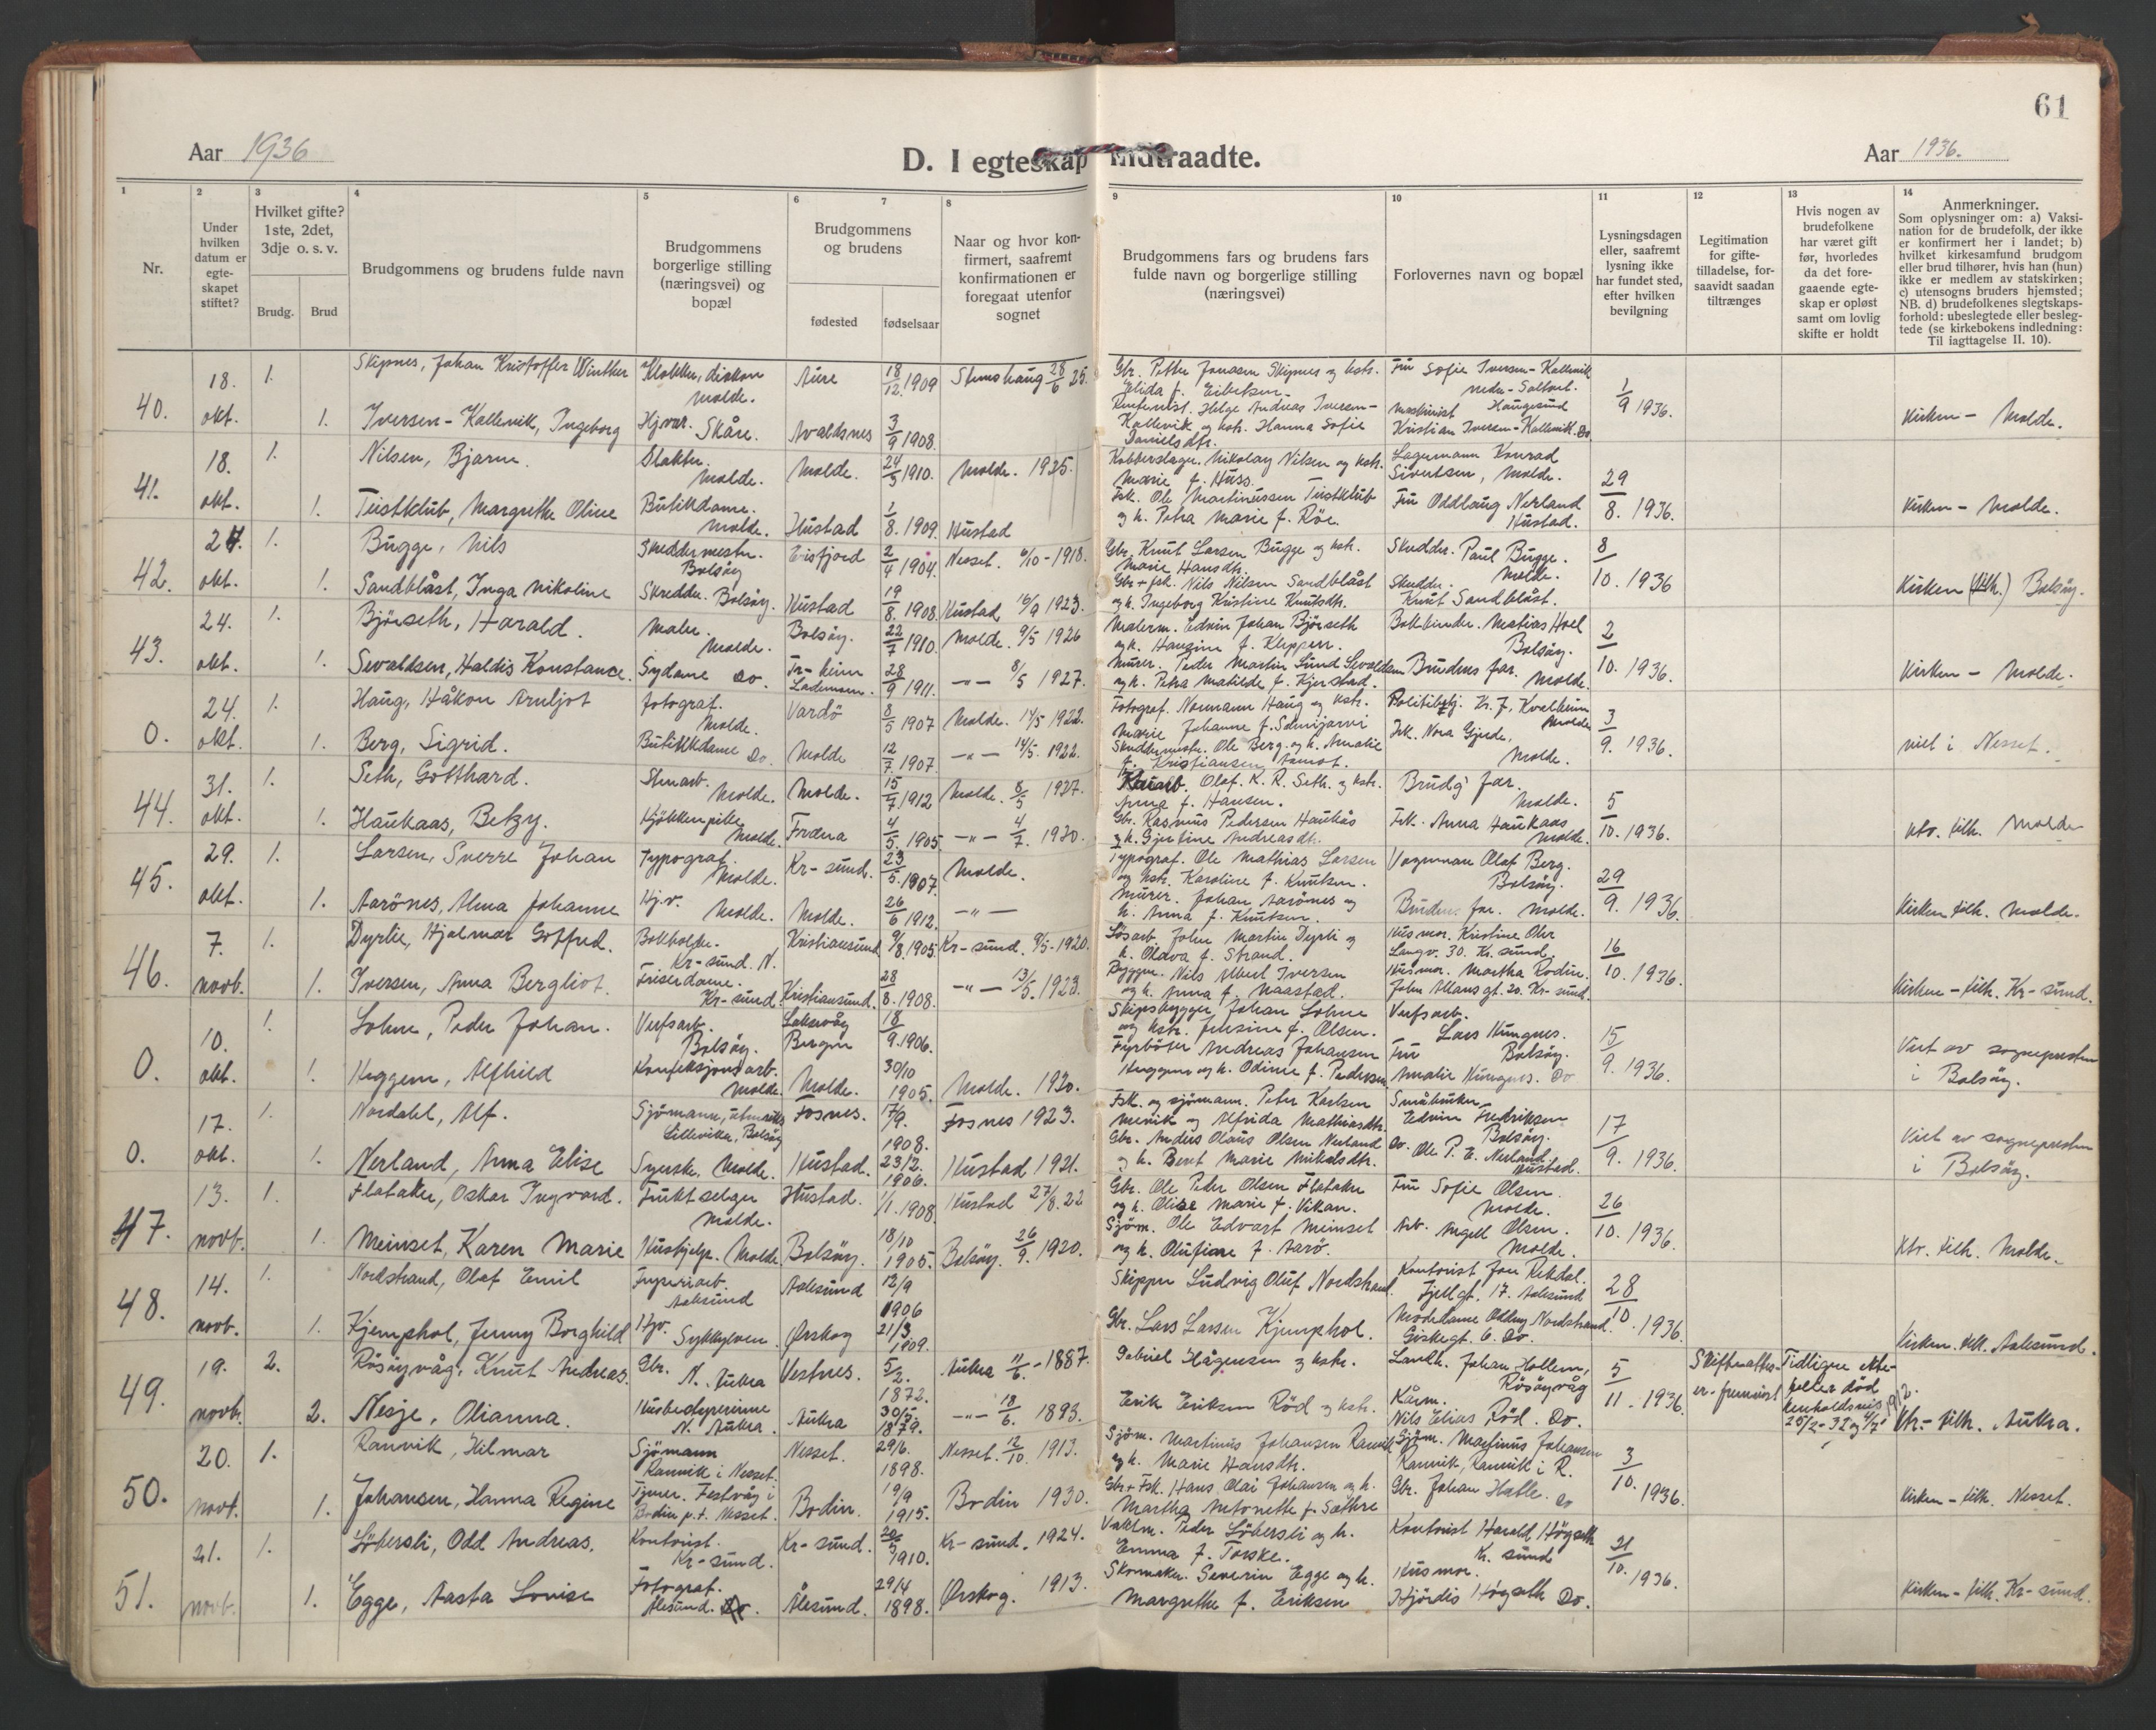 61
Aar 1936
D. I egteskap indtraadte.
Aar 1936.
1 2 3 4 5 6 7 8 9 10 11 12 13 14
Nr.
Under hvilken datum er egte-skapet stiftet?
Hvilket gifte? 1ste, 2det, 3dje o. s. v.
Brudg. Brud
Brudgommens og brudens fulde navn
Brudgommens borgerlige stilling (næringsvei) og bopæl
Brudgommens og brudens
fødested fødselsaar
Naar og hvor kon-firmert, saafremt konfirmationen er foregaat utenfor sognet
Brudgommens fars og brudens fars fulde navn og borgerlige stilling (næringsvei)
Forlovernes navn og bopæl
Lysningsdagen eller, saafremt lysning ikke har fundet sted, efter hvilken bevilgning
Legitimation for gifte-tilladelse, for-saavidt saadan tiltrænges
Hvis nogen av brudefolkene har været gift før, hvorledes da det fore-gaaende egte-skap er opløst samt om lovlig skifte er holdt
Anmerkninger.
Som oplysninger om: a) Vaksi-nation for de brudefolk, der ikke er konfirmert her i landet; b) hvilket kirkesamfund brudgom eller brud tilhører, hvis han (hun) ikke er medlem av statskirken; c) utensogns bruders hjemsted; NB. d) brudefolkenes slegtskaps-forhold: ubeslegtede eller besleg-tede (se kirkebokens indledning: Til iagttagelse II. 10).
40. 18. okt. 1. Skipnes, Johan Kristoffer Winther Klokker, diakon Molde. Aure 18/12 1909 Stenshaug 28/6 25. Gbr. Petter Jonassen Skipnes og hstr. Elida f. Eibertsen. Fru Sofie Iversen-Kallevik Haugesund 1/9 1936. Kirken - Molde.
1. Iversen-Kallevik, Ingeborg Hjvær. Skåre. Avaldsnes 3/9 1908. Helge Andreas Iversen-Kallevik og hstr. Hanna Sofie Danielsdtr. Maskinist Kristian Iversen-Kallevik. Do
41. 18. okt. 1. Nilsen, Bjarne. Slakter. Molde. Molde. 24/3 1910. Molde. 1925. Kobberslager. Nikolay Nilsen og hstr. Marie f. Huss. Lagermann Konrad Sivertsen, Molde. 29/8. 1936. Kirken - Molde.
1. Tustklub, Margrethe Oline Butikdame. Molde. Hustad 1/8. 1909. Hustad Fsk. Ole Martinussen Tustklub og h. Petra Marie f. Röe. Fru Oddlaug Nerland Hustad.
42. 24. okt. 1. Bugge, Nils Skreddermester. Bolsöy Eresfjord 2/4 1904. Nesset. 6/10-1918. Gbr. Knut Larsen Bugge og hstr. Marie Hansdtr. Skredder. Paul Bugge. Molde. 8/10. 1936 Kirken (tilh.) Bolsöy.
1. Sandblåst, Inga Nikoline Skredder. Bolsöy. Hustad 19/8. 1908. Hustad 16/9 1923. Gbr + fsk. Nils Nilsen Sandblåst og h. Ingeborg Kristine Knutsdtr. Skredder. Knut Sandblåst.
43. 24. okt. 1. Björseth, Harald. Maler. Molde. Bolsöy. 22/7 1910. Molde. 9/5 1926 Malerm. Edvin Johan Björseth og h. Haugine f. Kleppen. Bokbinder. Matias Hoel Bolsöy. 2/10. 1936. Kirken - Molde.
1. Sevaldsen, Haldis Konstance. Sydame Do. Tr-heim Lademoen. 28/9 1911. -"- 8/5 1927. Murer. Peder Martin Lund Sevaldsen og h. Petra Matilde f. Kjerstad. Brudens far. Molde.
0. 24. okt. 1. Haug, Håkon Arnljot Fotograf. Molde. Vardö 8/5 1907 Molde. 14/5 1922. Fotograf. Normann Haug og hstr. Marie Johanne f. Politibetj. Kr. J. Kvalheim Molde 3/9. 1936. viet i Nesset.
1. Berg, Sigrid. Butikkdame Do. Molde 12/7 1907. -"- 14/5. 1922. Skreddermester. Ole Berg. og h. Amalie f. Kristiansen Frk. Nora Gjerde, Molde.
44. 31. okt. 1. Seth, Gotthard. Stenarb. Molde. Molde. 15/7 1912 Molde. 8/5 1927. Olaf. K. R. Seth. og hstr. Anna f. Hansen. Brudg far. Molde. 5/10. 1936. utv. tilh. Molde
1. Haukaas, Betzy. Kjökkenpike Molde. Fræna 4/5. 1905 -"- 4/7. 1920. Gbr. Rasmus Pedersen Haukås og h. Gjertine Andreasdt. Frk. Anna Haukaas Molde.
45. 29. okt. 1. Larsen, Sverre Johan Typograf. Molde. Kr-sund. 23/5. 1907. Molde. Typograf. Ole Mathias Larsen og hstr. Karoline f. Knutsen. Vognman Olaf Berg. Bolsöy. 29/9. 1936. Kirken tilh. Molde.
1. Aarönes, Alma Johanne Hj.v. Molde. Molde. 26/6 1912. -"- Murer. Johan Aarönes og h. Anna f. Knutsen. Brudens far. Molde.
46. 7. novb. 1. Dyrlie, Hjalmar Gotfred. Bokholder. Kr-sund. N. Kristiansund 9/8. 1905. Kr-sund. 9/5-1920. Lösarb. John Martin Dyrli og h. Oldva f. Strand. Husmor. Kristine Ohr Langv. 30. Kr.sund. 16/10. 1936. Kirken - tilh. Kr-sund.
1. Iversen, Anna Bergliot. Friserdame. Kr-sund. Kristiansund. 28/8. 1908. -"- 13/5. 1923. Byggm. Nils Albert Iversen og h. Anna f. Naastad. Husmor. Martha Rodin. John Allans gt. 20. Kr-sund.
0. 10. okt. 1. Lohne, Peder Johan. Verfsarb. Bolsöy. Laksevåg Bergen 18/9. 1906. Skipsbygger Johan Lohne og hstr. Jensine f. Olsen. Verfsarb. Lars Hungnes. Bolsöy. 15/9. 1936. Viet av sognepresten i Bolsöy.
1. Heggem, Alfhild Konfeksjonsarb. Molde. Molde. 30/10 1905. Molde. 1920. Fyrböter Andreas Johansen Heggem og h. Odine f. Pedersen. Fru Amalie Hungnes. Do
0. 17. okt. 1. Nordahl, Alf. Sjömann, utenriks Lillevika, Bolsöy Fosnes. 17/9. 1908. Fosnes 1923. Fsk. og sjömann. Peter Karlsen og Alfrida Mathiasdtr. Småbruker Edvin Fredriksen Bolsöy. 17/9. 1936. Viet av sognepresten i Bolsöy.
1. Nerland, Anna Elise Syerske. Molde. Hustad. 23/2. 1906. Hustad 1921. Gbr. Anders Olaus Olsen Nerland og h. Beret Marie Mikalsdtr. Do. Ole P. E. Nerland Hustad.
47. 13. novb. 1. Flataker, Oskar Ingvard. Fruktselger Molde. Hustad. 1/1. 1908. Hustad 27/8. 22 Gbr. Ole Peder Olsen Flataker og h. Olise Marie f. Vikan. Fru Sofie Olsen. Molde. 26/10. 1936. Ktr. tilh. Molde.
1. Meinset, Karen Marie Hushjelp. Molde. Bolsöy. 18/10 1905. Bolsöy. 26/9. 1920. Sjöm. Ole Edvart Meinset og h. Olufine f. Aarö. Arb. Angell Olsen. Molde.
48. 14. novb. 1. Nordstrand, Olaf Emil Aalesund Aalesund 12/9 1906 Skipper Ludvig Oluf Nordstrand. Kontorist Jon Rekdal. Fjellgt. 17. Aalesund 28/10. 1936. Kirken. tilh. Aalesund.
1. Kjemphol, Jenny Borghild Hjv. Sykkylven. Ørskog 21/3 1909. Gbr. Lars Larsen Kjemphol. Motedame Oddny Nordstrand. Giskegt. 6. Do.
49. 19. novb. 2. Rösöyvåg, Knut Andreas. Gbr. N. Aukra Vestnes. 5/2. 1872. Aukra 11/6. - 1887. Gabriel Hågensen og hstr. Landh. Johan Hollem, Rösöyvåg 5/11. 1936. Skifteattes-er fremvist Tidligere ekte-feller död henholdsvis 28/2-32 og 4/7 1912. Ktr.-tilh. Aukra.
2. Nesje, Olianna. Husbestyrerinne N. Aukra. Aukra 30/5. 1879. -"- 18/6. 1893. Erik Eriksen Röd og hstr. Kårm. Nils Elias Röd. Do.
50. 20. novb. 1. Ranvik, Hilmar Sjömann Ranvik i Nesset. Nesset. 29/6. 1898. Nesset. 12/10 1913. Sjöm. Martinus Johansen Ranvik og h. Marie Hansdtr. Sjöm. Martinus Johansen Ranvik, Ranvik i R. 3/10. 1936. Kirken - tilh. Nesset.
1. Johansen, Hanna Regine Tjener. Festvåg i Bodin p.t. Nesset. Bodin. 19/9 1915. Bodin 1930. Gbr + Fsk. Hans Olai Johansen og h. Martha Antonette f. Sæthre Gbr. Johan Hatle. Do
51. 21. novb. 1. Löbersli, Odd Andreas. Kontorist. Kr-sund. Kr-sund. 20/5 1910. Kr-sund. 1924. Vaktm. Peder Löbersli og h. Emma f. Torske. Kontorist Harald Högseth Kr. sund 21/10. 1936. Kirken - tilh. Kr-sund.
1. Egge, Aasta Lovise Fotograf. Ålesund. Ålesund. 29/4 1898. Ørskog. 1913. Skomaker. Severin Egge og h. Margrethe f. Eriksen Husmor. Hjördis Högseth Do.